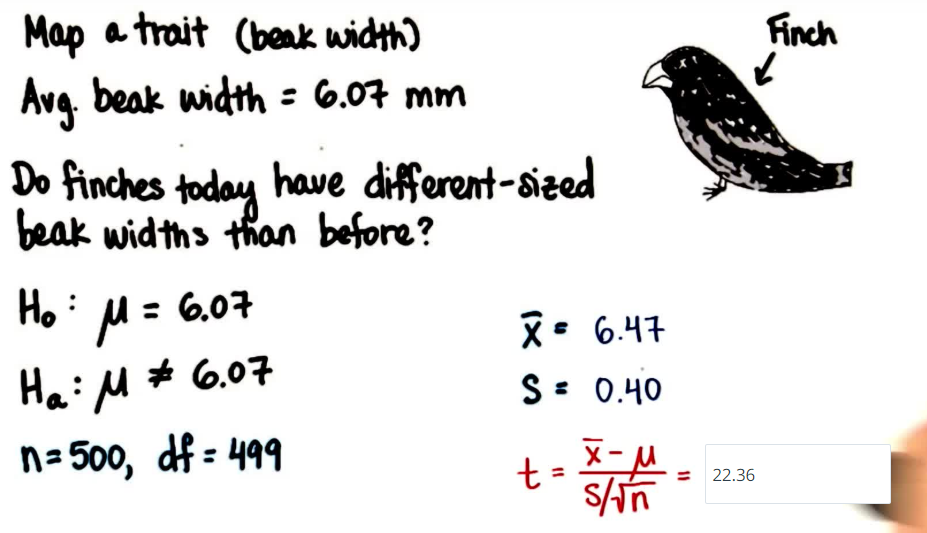 Map a trait (beak width)
Finch
Avg. beak width = 6.07 mm
Do finches today have different-sized
beak widths than before?
H₀: μ = 6.07
Hₐ: μ ≠ 6.07
n=500, df = 499
x̄ = 6.47
S = 0.40
t = (x̄ - μ) / (S/√n) = 22.36